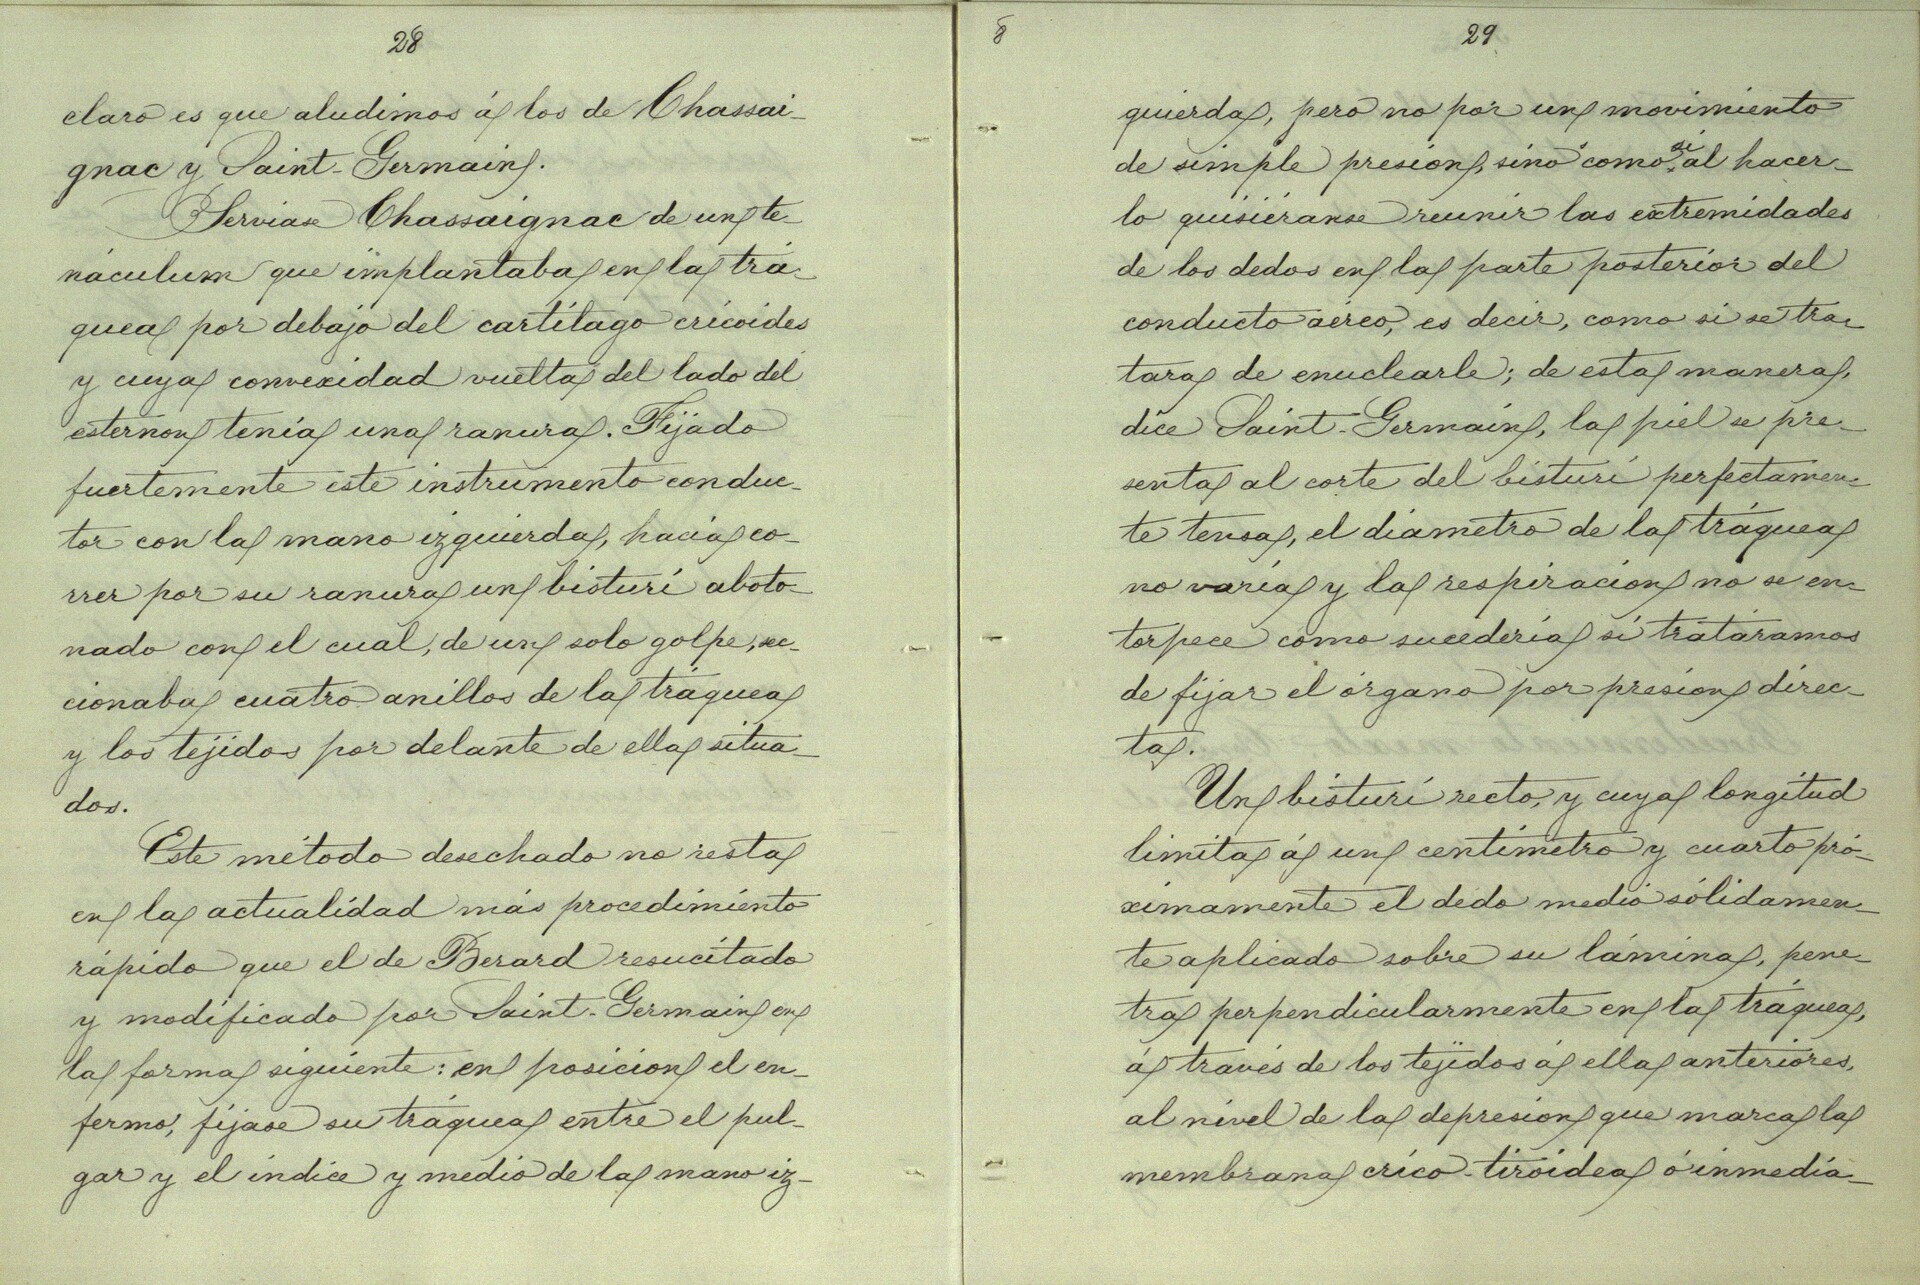 28
claro es que aludimos á los de Chassai-
gnac y Saint-Germain.
Serviase Chassaignac de un te-
náculum que implantaba en la trá-
quea por debajo del cartílago cricoides
y cuya convexidad vuelta del lado del
esternon tenía una ranura. Fijado
fuertemente este instrumento conduc-
tor con la mano izquierda, hacía co-
rrer por su ranura un bisturí aboto-
nado con el cual, de un solo golpe, sec-
cionaba cuatro anillos de la tráquea
y los tejidos por delante de ella situa-
dos.
Este método desechado no resta
en la actualidad más procedimiento
rápido que el de Berard resucitado
y modificado por Saint-Germain en
la forma siguiente: en posicion el en-
fermo, fíjase su tráquea entre el pul-
gar y el índice y medio de la mano iz-
8
29
quierda, pero no por un movimiento
de simple presion, sino como si al hacer-
lo quisiéranse reunir las extremidades
de los dedos en la parte posterior del
conducto aéreo, es decir, como si se tra-
tara de enuclearle; de esta manera,
dice Saint-Germain, la piel se pre-
senta al corte del bisturí perfectamen-
te tensa, el diámetro de la tráquea
no varía y la respiracion no se en-
torpece como sucedería si tratáramos
de fijar el órgano por presion direc-
ta.
Un bisturí recto, y cuya longitud
limita á un centímetro y cuarto pró-
ximamente el dedo medio sólidamen-
te aplicado sobre su lámina, pene-
tra perpendicularmente en la tráquea,
á través de los tejidos á ella anteriores,
al nivel de la depresion que marca la
membrana crico-tiróidea ó inmedia-